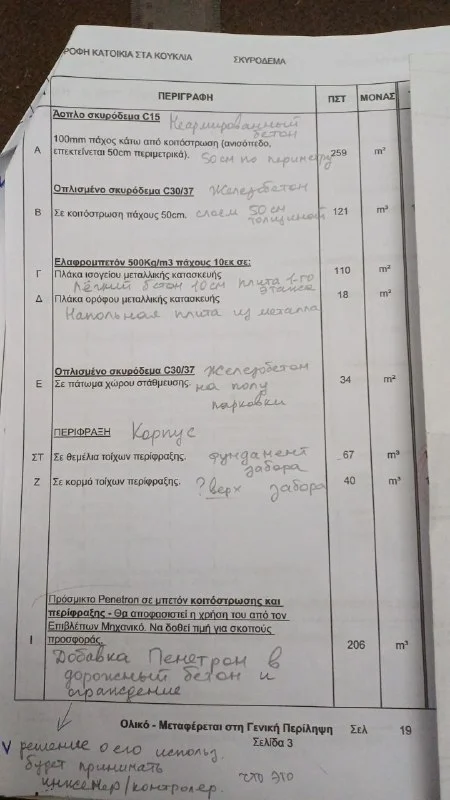 ΡΟΦΗ ΚΑΤΟΙΚΙΑ ΣΤΑ ΚΟΥΚΛΙΑ ΣΚΥΡΟΔΕΜΑ
ΠΕΡΙΓΡΑΦΗ ΠΣΤ ΜΟΝΑΣ
Άοπλο σκυρόδεμα C15 Неармированный
бетон
100mm πάχος κάτω από κοιτόστρωση (ανισόπεδο,
Α επεκτείνεται 50cm περιμετρικά). 50см по периметру 259 m²
Οπλισμένο σκυρόδεμα C30/37 Железобетон
Β Σε κοιτόστρωση πάχους 50cm. слоем 50см 121 m³
толщиной
Ελαφρομπετόν 500Kg/m3 πάχους 10εκ σε:
Γ Πλάκα ισογείου μεταλλικής κατασκευής 110 m²
Лёгкий бетон 10см плита 1-го
этажа
Δ Πλάκα ορόφου μεταλλικής κατασκευής 18 m²
Напольная плита из металла
Οπλισμένο σκυρόδεμα C30/37 Железобетон
Ε Σε πάτωμα χώρου στάθμευσης. на полу 34 m²
парковки
ΠΕΡΙΦΡΑΞΗ Корпус
ΣΤ Σε θεμέλια τοίχων περίφραξης. фундамент 67 m³
забора
Ζ Σε κορμό τοίχων περίφραξης. ?верх забора 40 m³
Πρόσμικτο Penetron σε μπετόν κοιτόστρωσης και
περίφραξης - Θα αποφασιστεί η χρήση του από τον
Επιβλέπων Μηχανικό. Να δοθεί τιμή για σκοπούς
Ι προσφοράς. 206 m³
Добавка Пенетрон в
дорожный бетон и
ограждение
Ολικό - Μεταφέρεται στη Γενική Περίληψη Σελ 19
Σελίδα 3
V решение о его использ.
будет принимать
инженер/контролер. что это